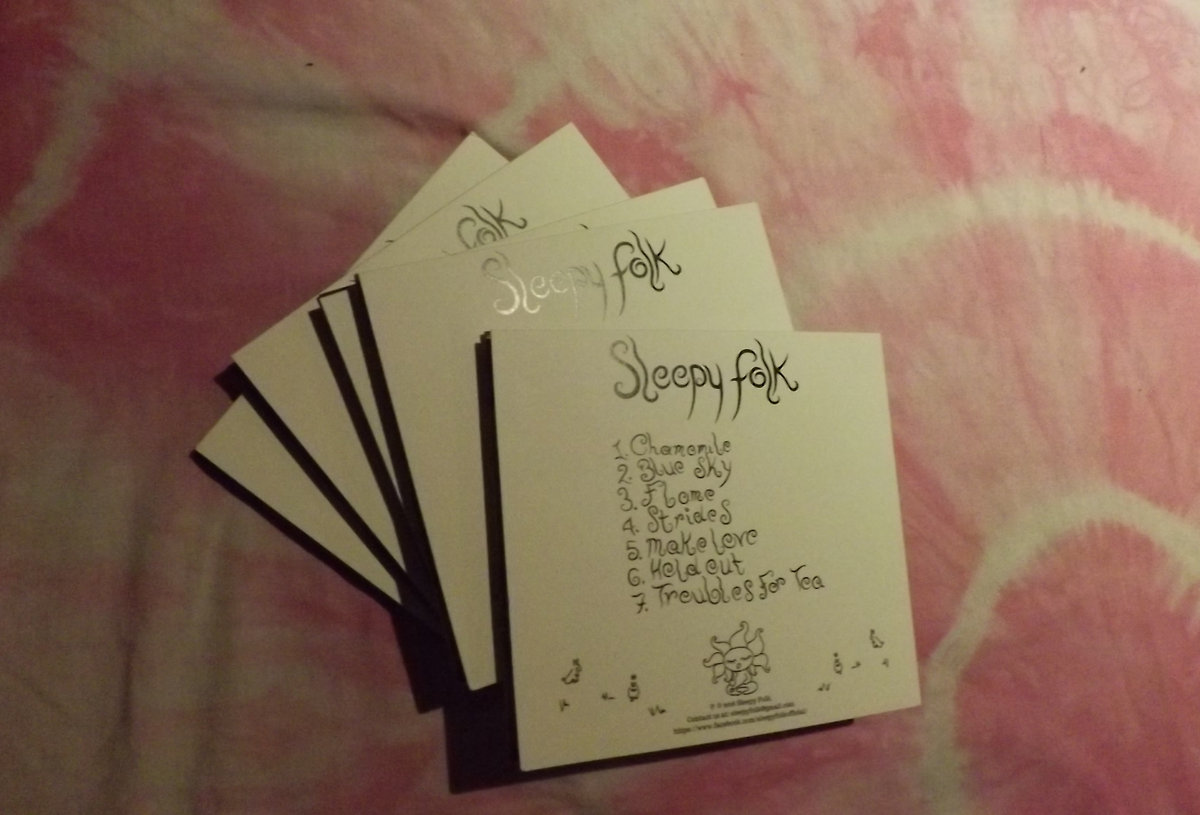 folk
Sleepy folk
Sleepy folk
1. Chamomile
2. Blue Sky
3. Flame
4. Strides
5. Make love
6. Held out
7. Troubles For Tea
Sleepy Folk
Contact us at: sleepyfolk@gmail.com
https://www.facebook.com/sleepyfolkofficial/